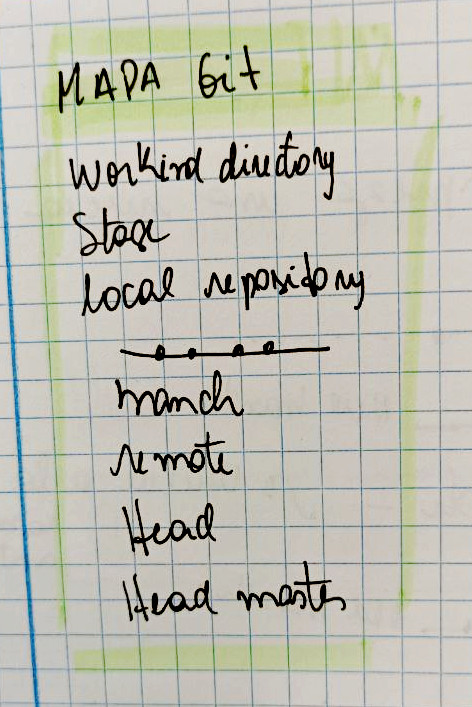 MAPA Git
Workind directory
Stage
Local reposidory
branch
remote
Head
Head master